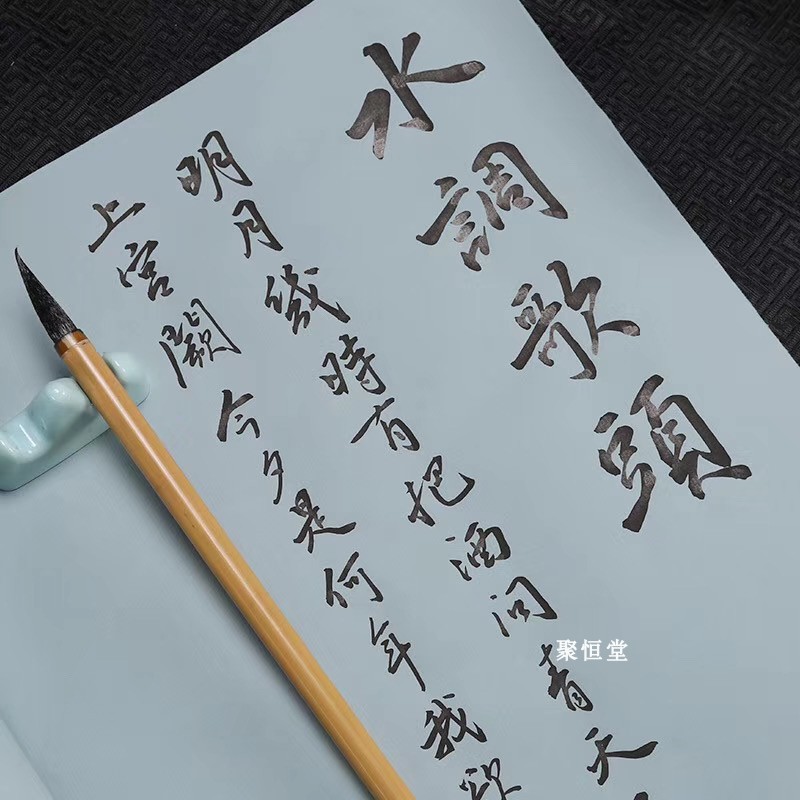 水調歌頭
明月幾時有把酒問青天
上宮闕今夕是何年我欲
聚恒堂